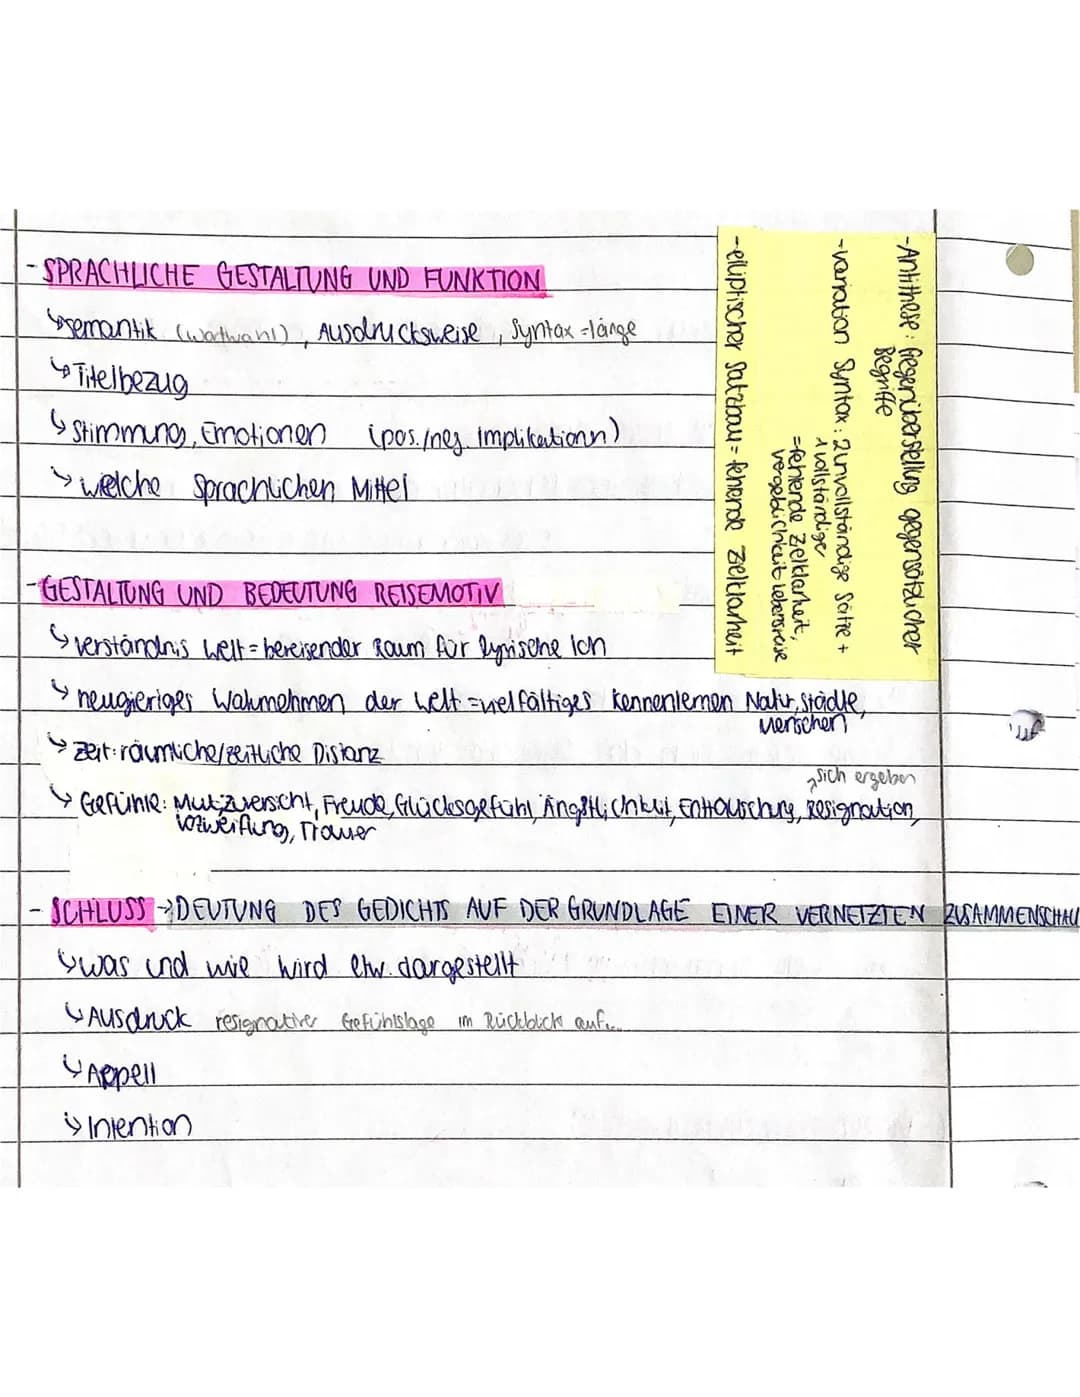 - SPRACHLICHE GESTALTUNG UND FUNKTION
↳ semantik (Wortwahl), Ausdrucksweise, Syntax = länge
↳ Titelbezug
↳ Stimmung, Emotionen (pos./neg. Implikationn)
↳ welche Sprachlichen Mittel
- GESTALTUNG UND BEDEUTUNG REISEMOTIV
↳ verständnis Welt = bereisender Raum für lyrische Ich
↳ neugieriges Wahrnehmen der Welt = vielfältiges kennenlernen Natur, städte,
Menschen
↳ Zeit: räumliche/zeitliche Distanz
→ sich ergeben
↳ Gefühle: Mut, Zuversicht, Freude, Glücksgefühl, Ängstlichkeit, Enttäuschung, Resignation,
Verzweiflung, Trauer
- SCHLUSS → DEUTUNG DES GEDICHTS AUF DER GRUNDLAGE EINER VERNETZTEN ZUSAMMENSCHAU
↳ was und wie wird etw. dargestellt
↳ Ausdruck resignativer Gefühlslage im Rückblick auf...
↳ Appell
↳ Intention
- Antithese: Gegenüberstellung gegensätzlicher
Begriffe
- variation Syntax: 2 unvollständige Sätze +
1 vollständiger
= fehende Zielklarheit,
vergeblichkeit lebensreise
- elliptischer Satzbau = fehlende Zielklarheit